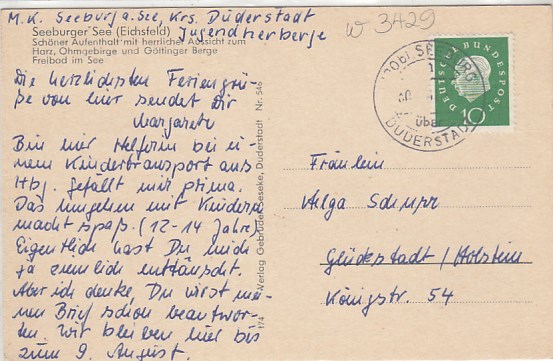 M. K. Seeburg a. See, Krs. Duderstadt
Jugendherberge
Seeburger See (Eichsfeld)
Schöner Aufenthalt mit herrlicher Aussicht zum
Harz, Ohmgebirge und Göttinger Berge
Freibad im See
Die herzlichsten Feriengrü-
ße von hier sendet Dir
Margarete
Bin hier Helferin bei ei-
nem Kindertransport aus
Hbg. gefällt mir prima.
Das umgehen mit Kindern
macht spaß. (12-14 Jahre)
Eigentlich hast Du mich
ja ziemlich enttäuscht.
Aber ich denke, Du wirst mei-
nen Brief schon beantwor-
ten. Wir bleiben hier bis
zum 9. August.
174
Verlag Gebrüder Seseke, Duderstadt Nr. 546
W 3429
SEEBURG
über
DUDERSTADT
DEUTSCHE BUNDESPOST
10
Fräulein
Helga
Glückstadt/Holstein
Königstr. 54